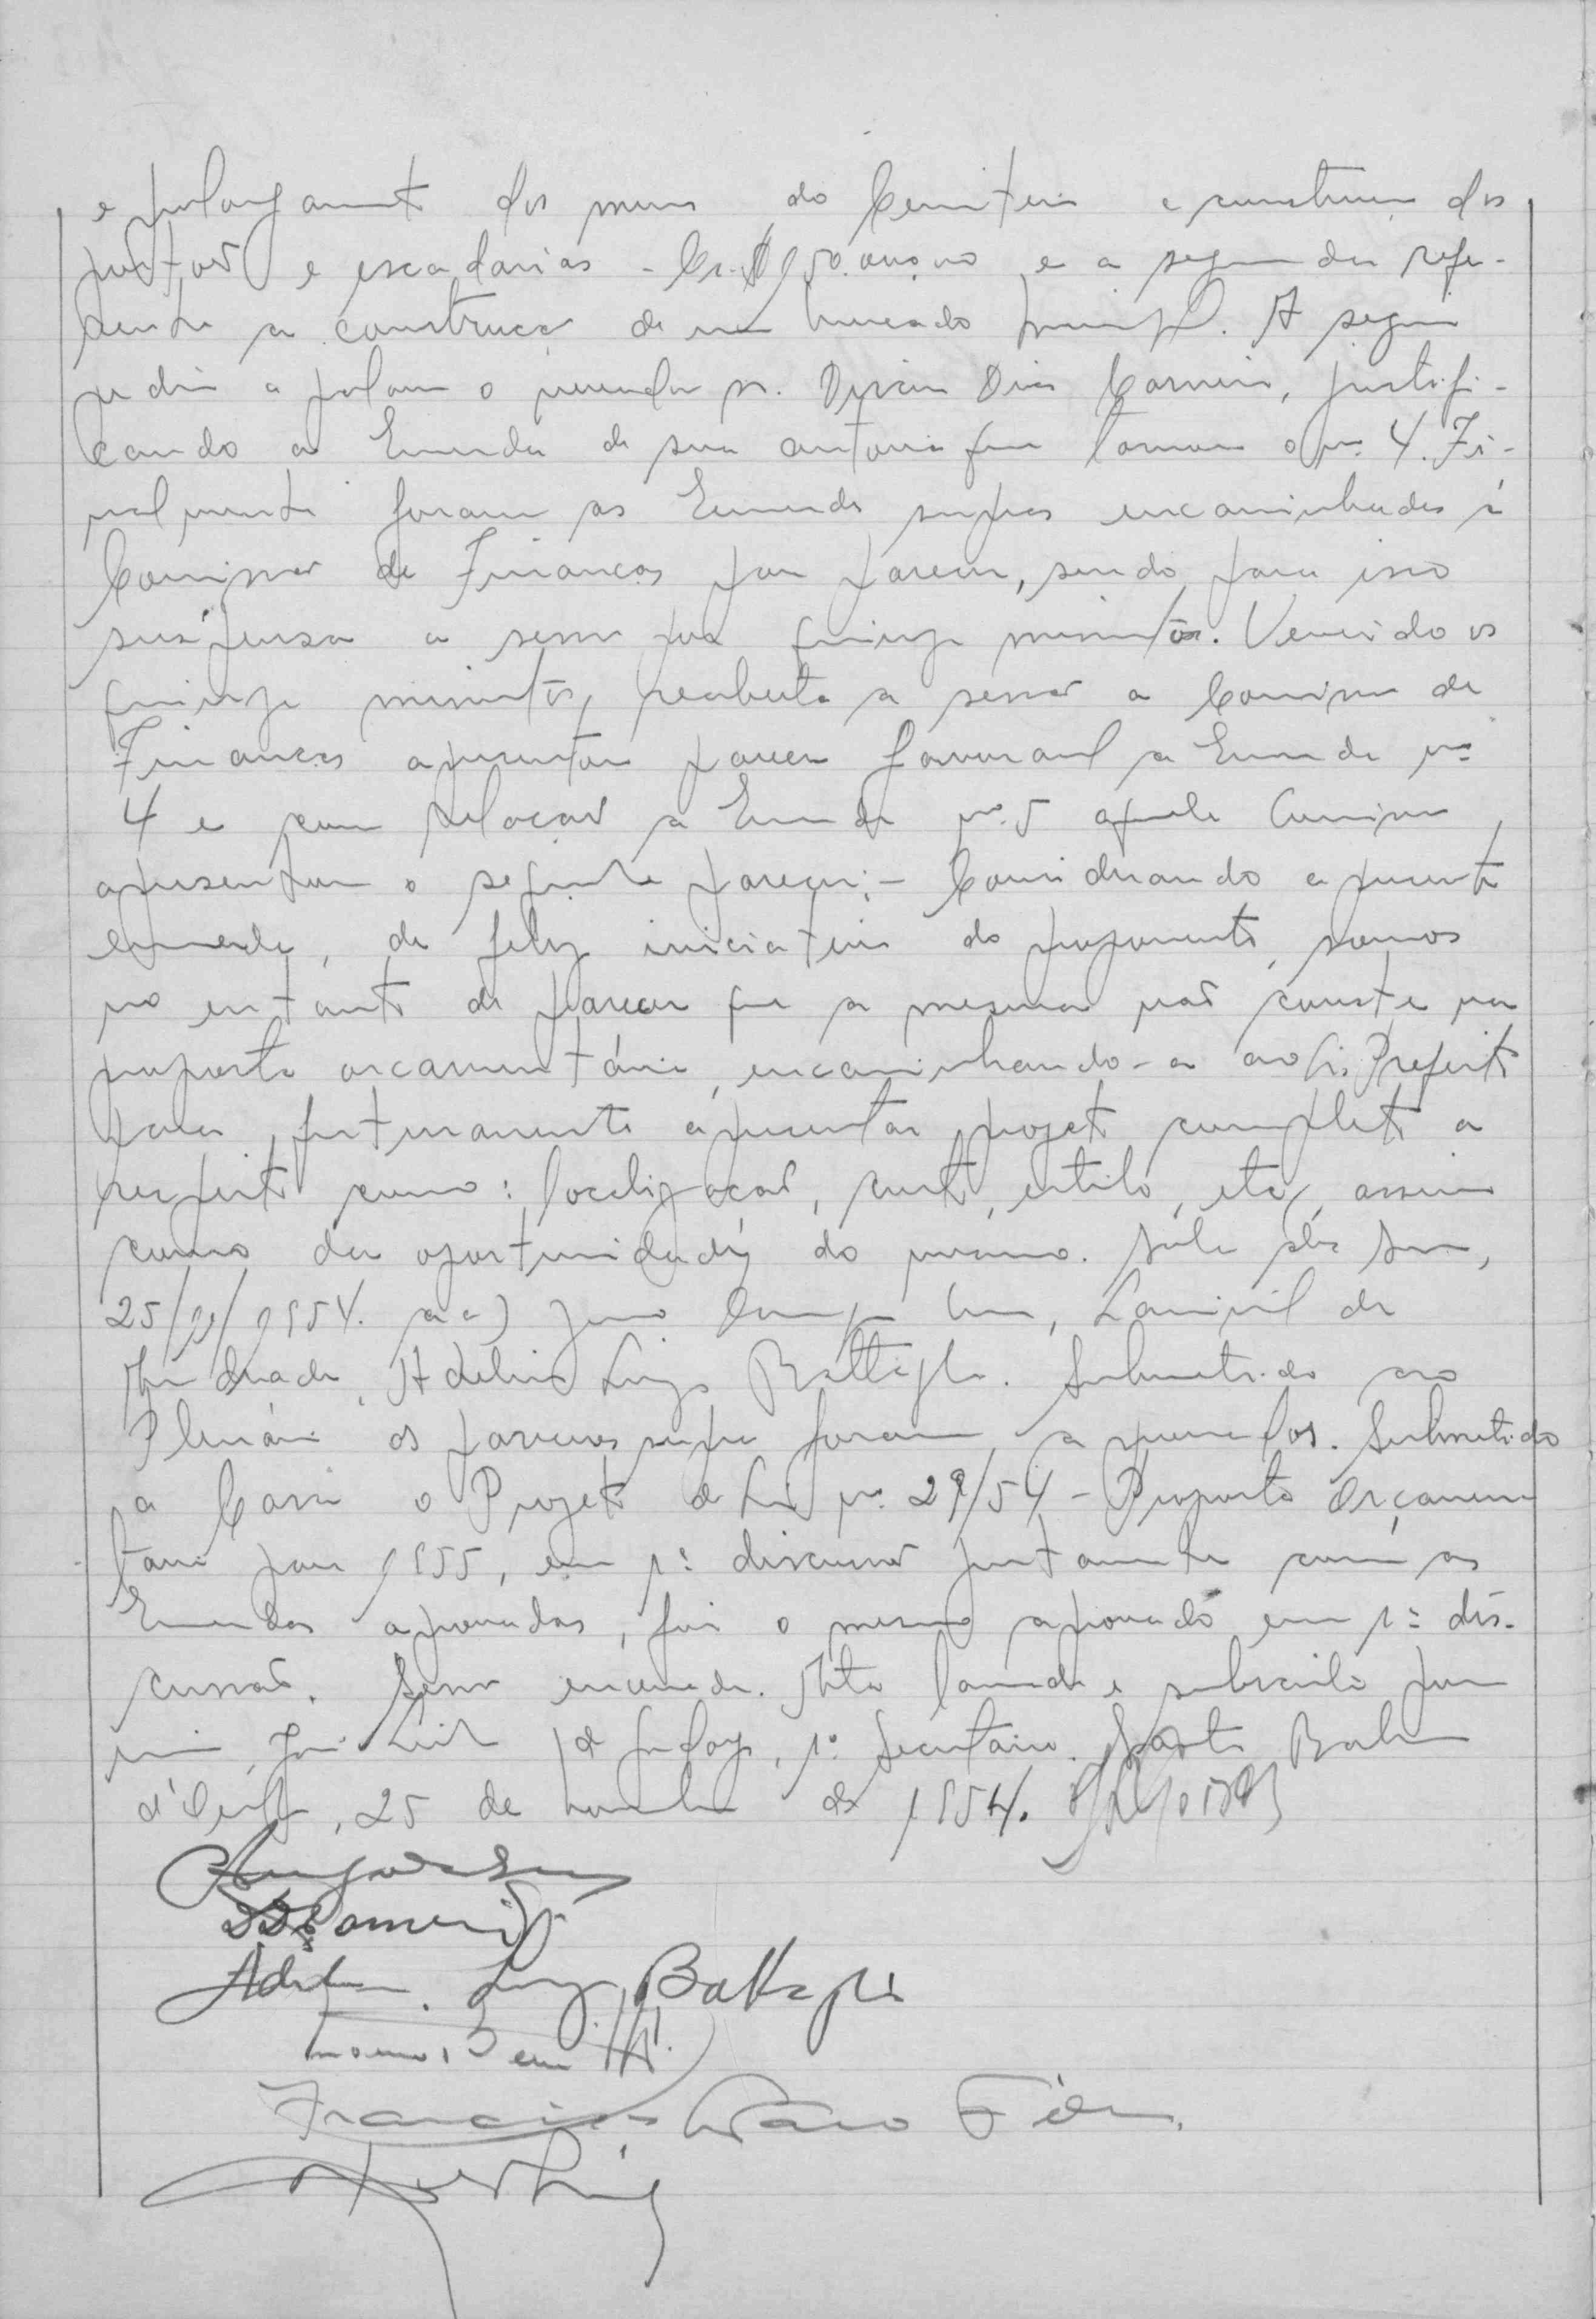 e prolongamento dos muros do Cemiterio e construção dos
portões e escadarias - Cr.$ 150.000,00 e a segunda refe-
rente a construção de um mercado municipal. A seguir
pediu a palavra o vereador sr. Dias Carneiro, justifi-
cando a Emenda de sua autoria que tomou o nº 4. Fi-
nalmente foram as Emendas supras encaminhadas á
Comissão de Finanças para parecer, sendo para isso
suspensa a sessão por quinze minutos. Vencido os
quinze minutos, reaberta a sessão a Comissão de
Finanças apresentou parecer favoravel a Emenda nº
4 e com relação a Emenda nº 5 aquela Comissão,
apresentou o seguinte parecer: - Considerando a presente
emenda, de feliz iniciativa do proponente, somos
no entanto de parecer que a mesma não conste na
proposta orçamentária, encaminhando-a ao Sr. Prefeito
para, futuramente apresentar projeto completo a
respeito como: localização, custo, estilo, etc, assim
como da oportunidade do mesmo. Sala das Sessões,
25/11/1954. aa) Lourival de
Andrade, Adelino Luiz Battaglia. Submetido ao
Plenário os pareceres supra foram aprovados. Submetido
a Casa o Projeto de Lei nº 29/54 - Proposta Orçamen
taria para 1955, em 1ª discussão juntamente com as
Emendas aprovadas, foi o mesmo aprovado em 1ª dis-
cussão. Sessão encerrada. Ata lavrada e subscrita por
mim, José Luiz de Godoy, 1º Secretário. Santa Barbara
d'Oeste, 25 de novembro de 1954.
Adelino Luiz Battaglia
Francisco